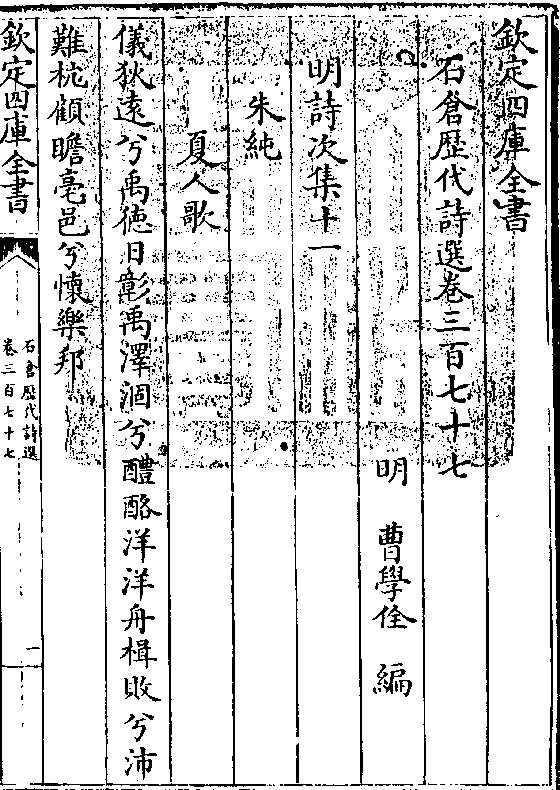 欽定四庫全書
石倉歴代詩選卷三百七十七
明 曹學佺 編
明詩次集十一
朱純
夏人歌
儀狄遠兮禹德日彰禹澤涸兮醴酪洋洋舟楫敗兮沛
難杭顧瞻亳邑兮懷樂邦
欽定四庫全書
石倉歷代詩選
卷三百七十七
一